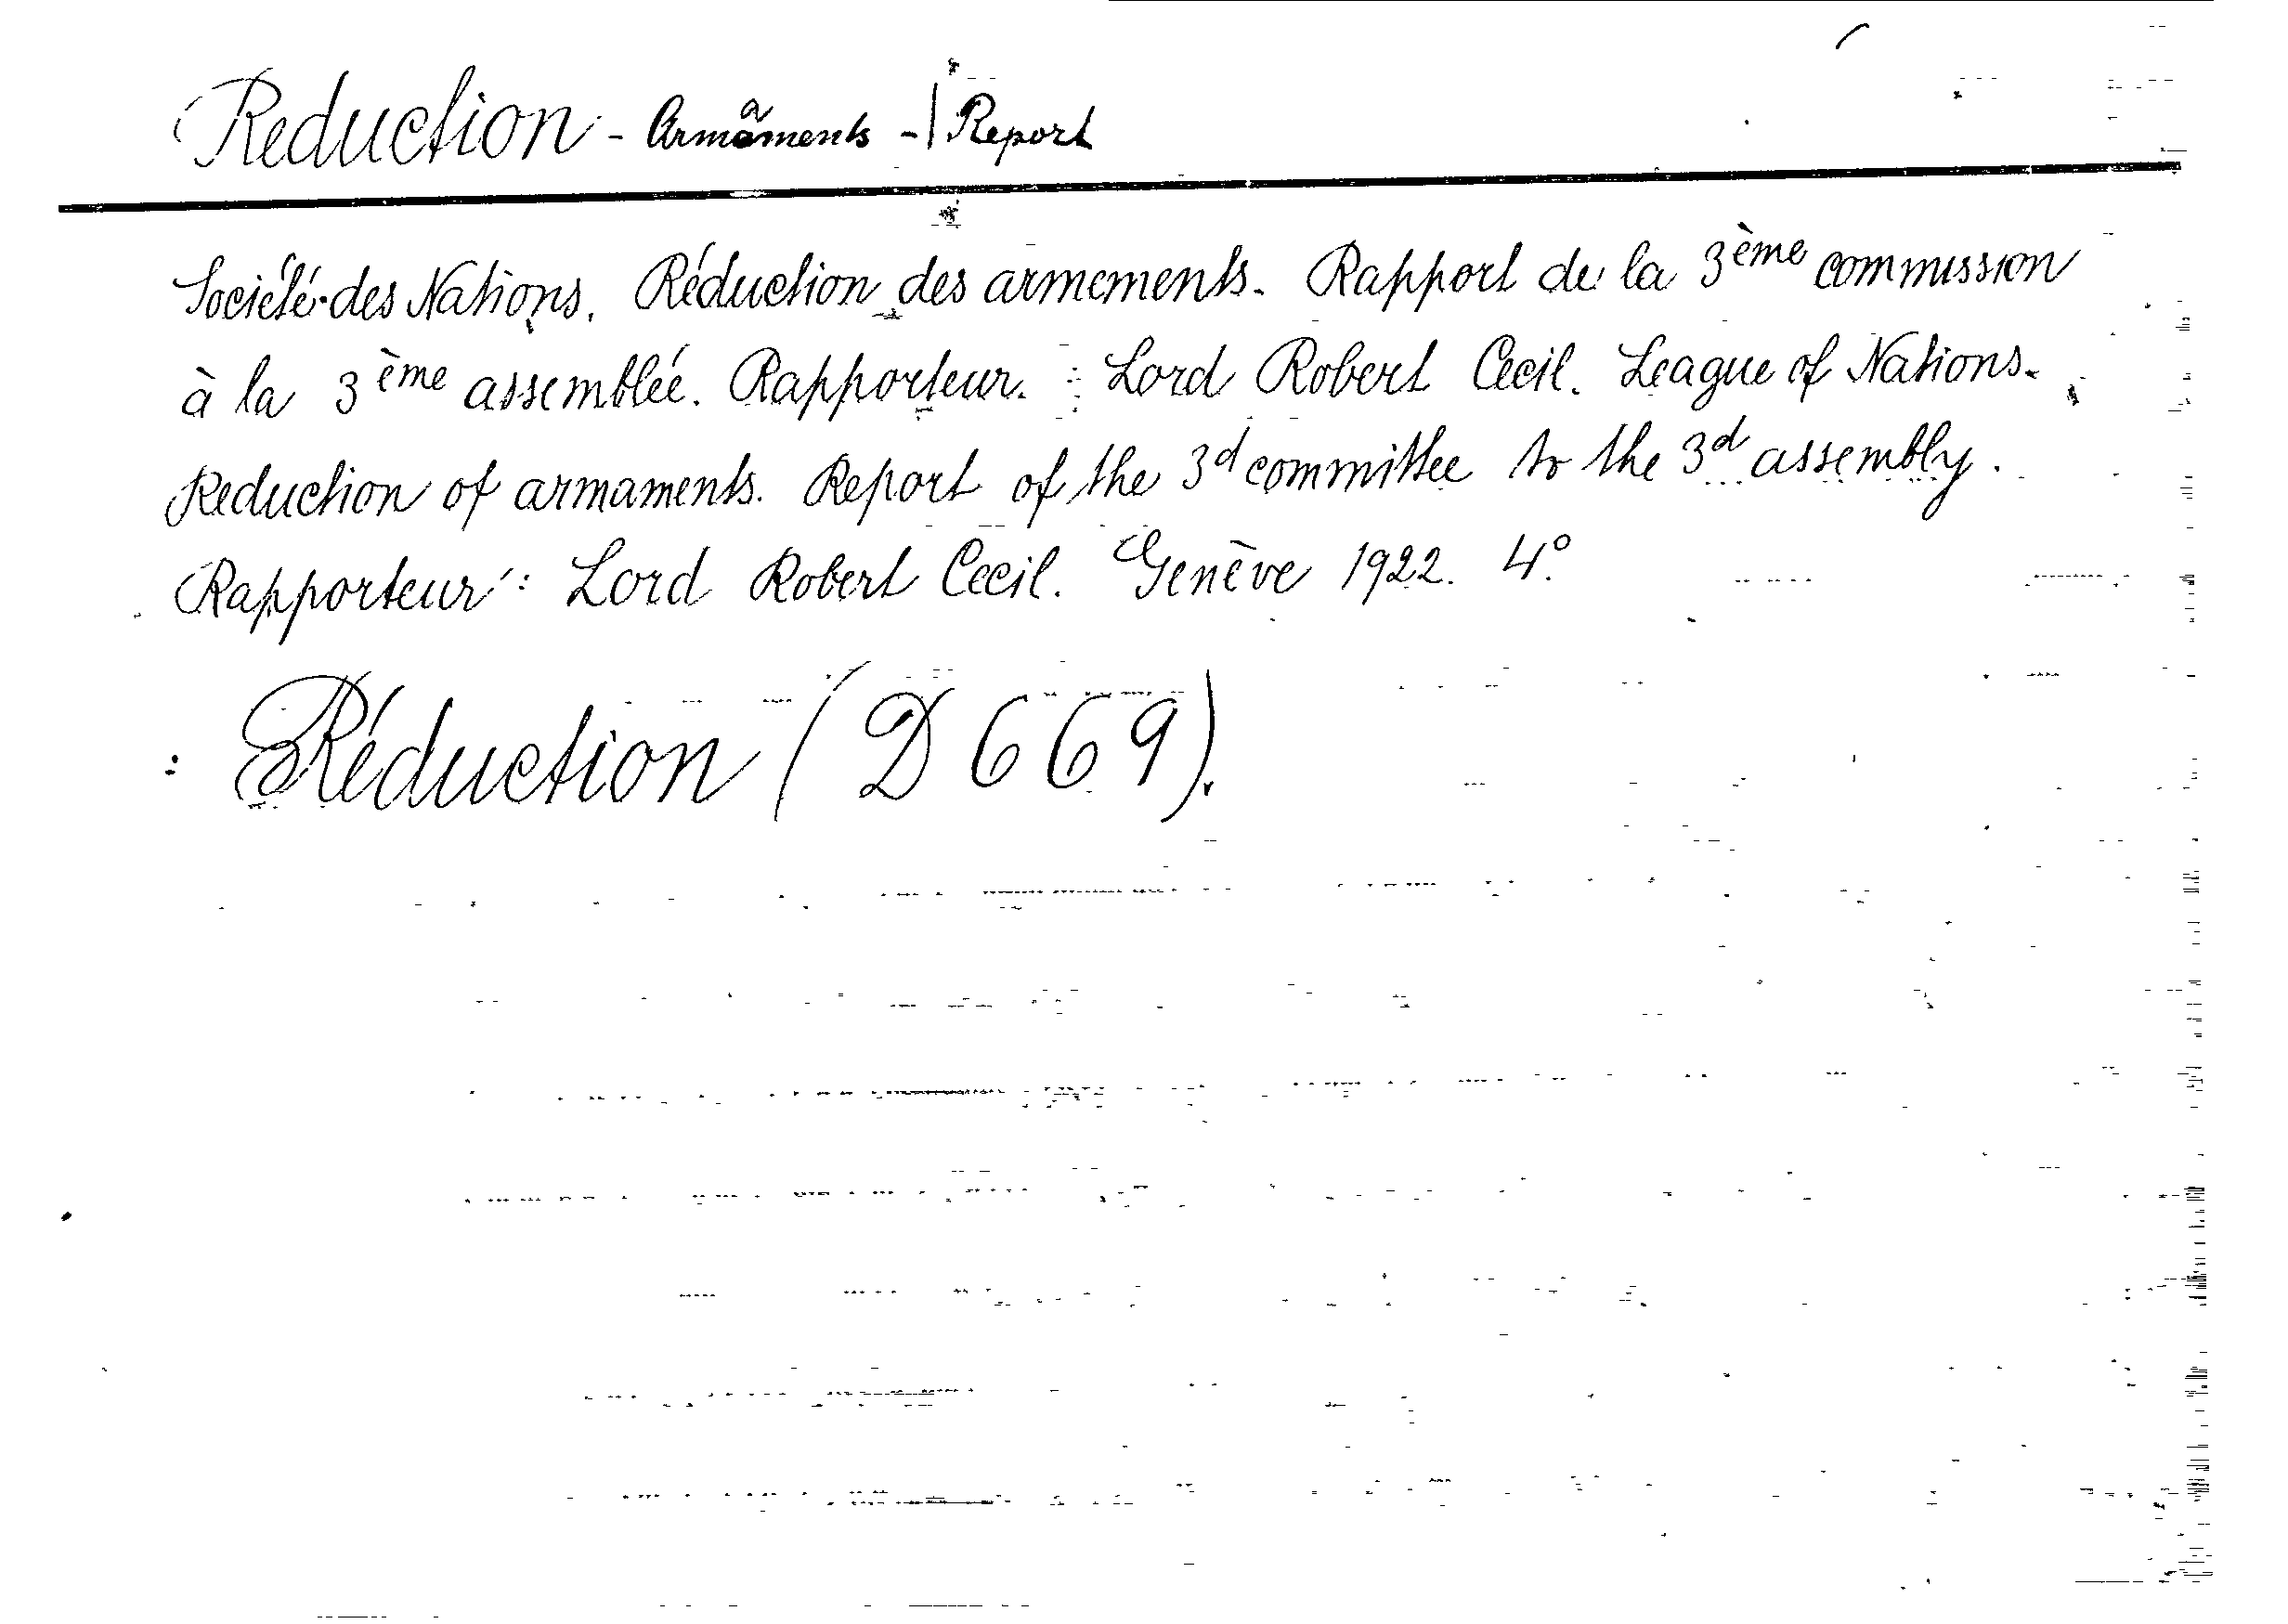 Reduction - Armaments - | Report
Société des Nations. Réduction des armements. Rapport de la 3ème commission
à la 3ème assemblée. Rapporteur. : Lord Robert Cecil. League of Nations.
Reduction of armaments. Report of the 3d committee to the 3d assembly.
Rapporteur : Lord Robert Cecil. Genève 1922. 4°.
: Réduction (D 669).